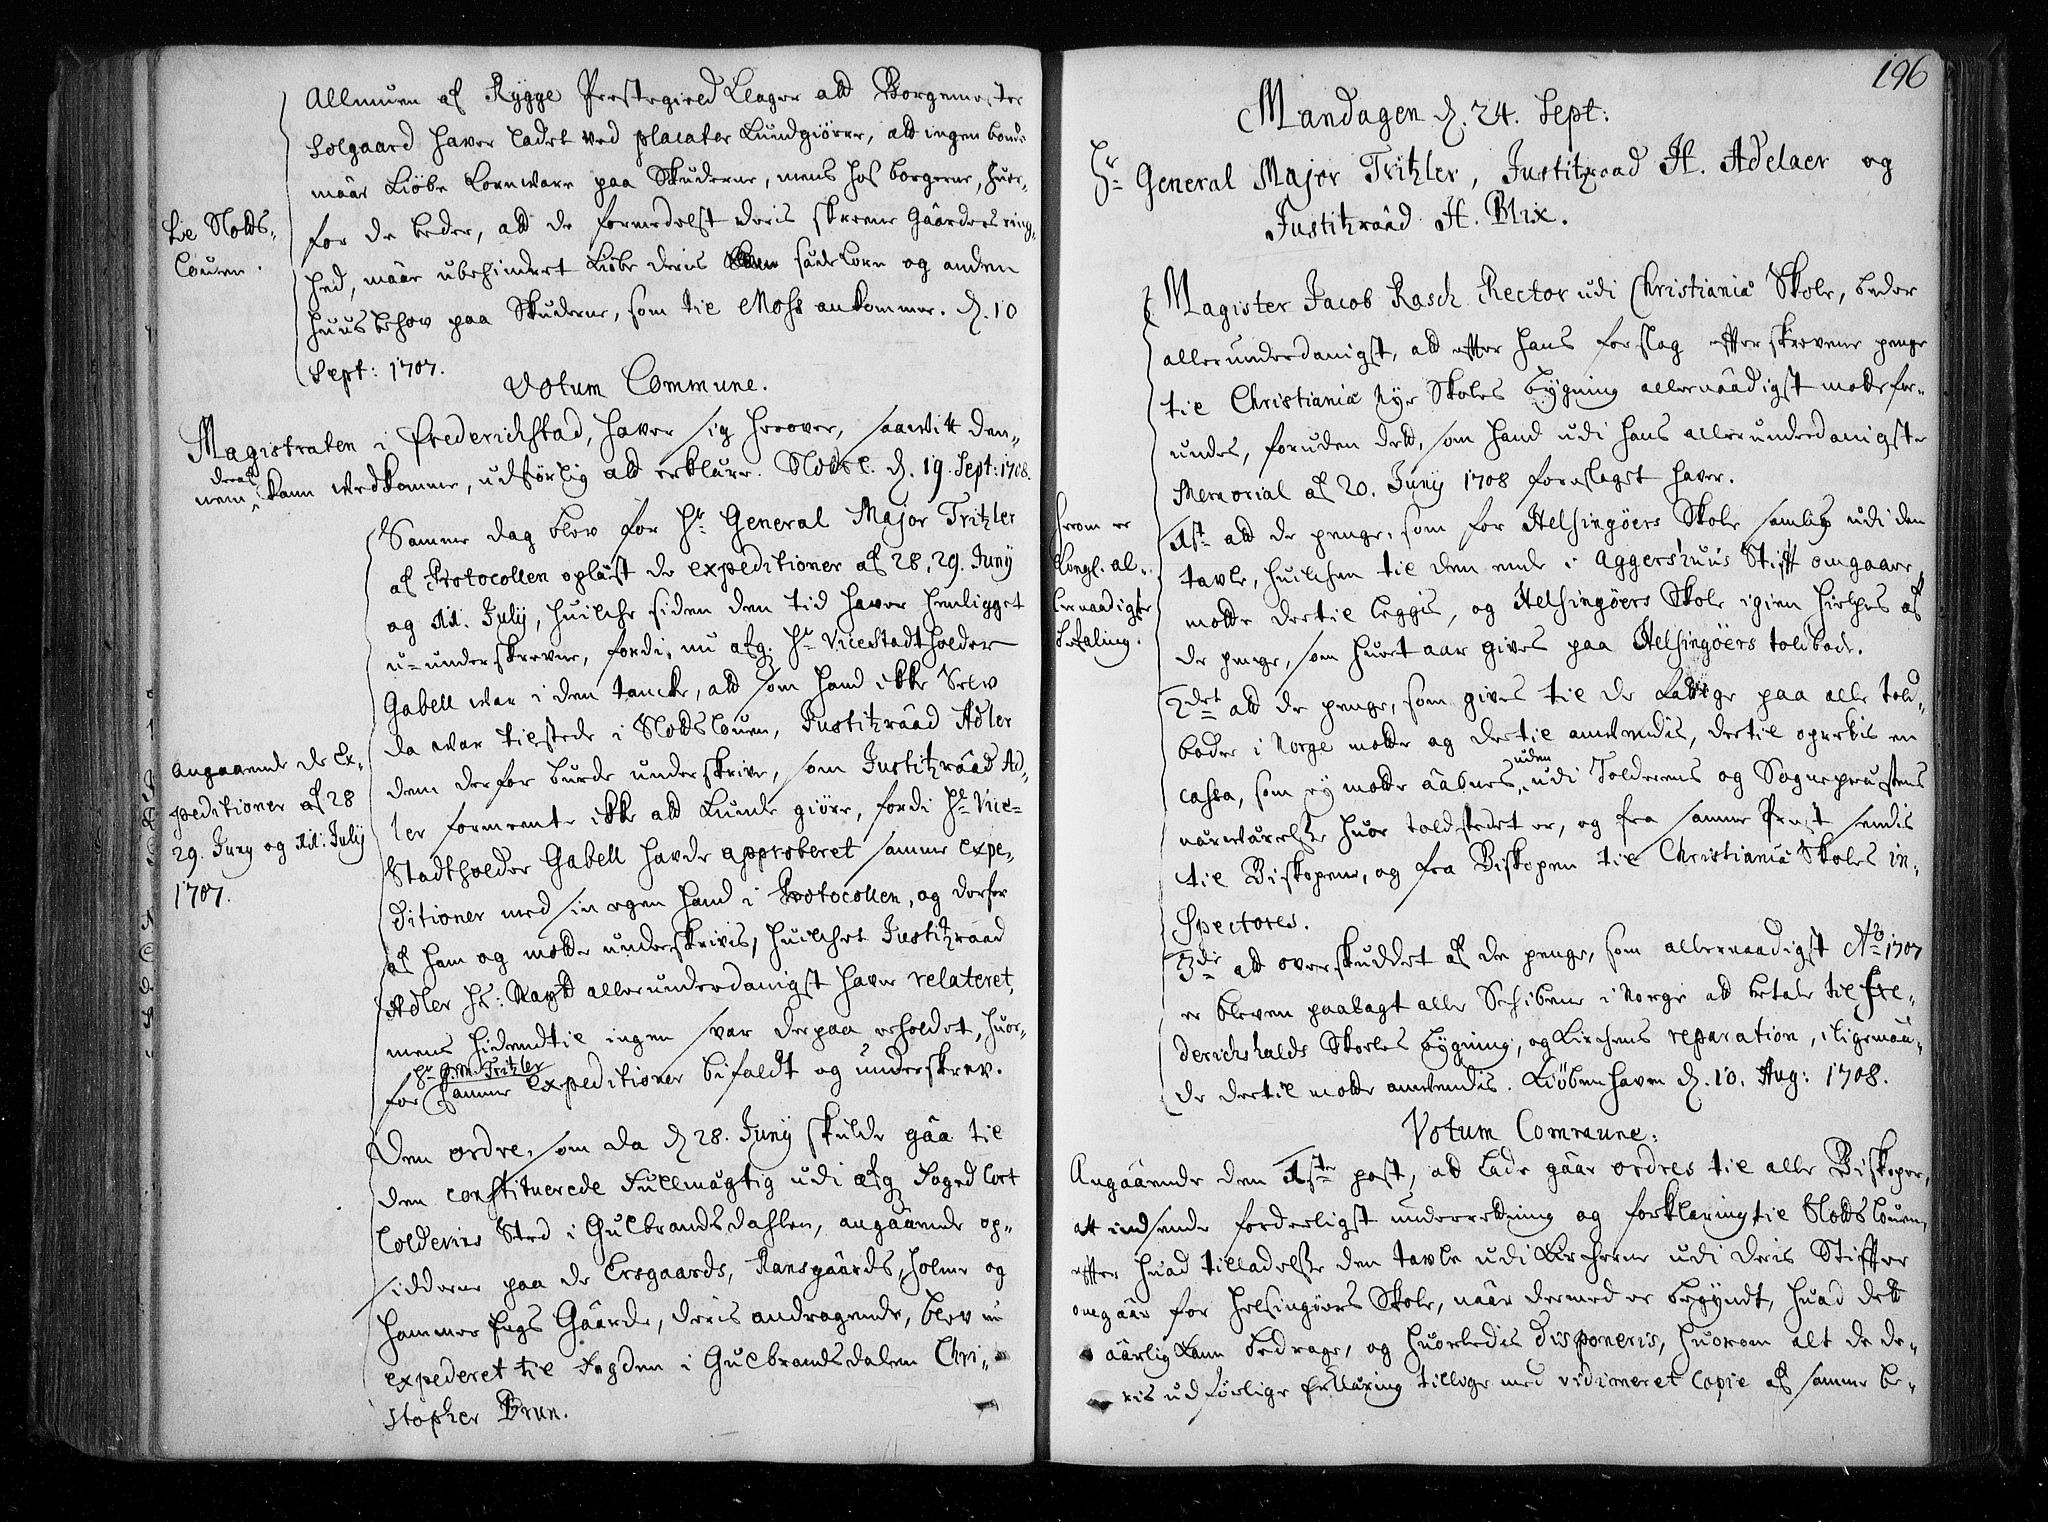 Allmuen af Rygge Prestegield klager att Borgemester
Solgaard haver ladet ved placater kundgiøre, att ingen bonde
maae kiøbe kornvare paa Skuderne, mens hos borgerne, huor-
for de beder, att de formedelst deris skreene Gaarders ring-
til Slotts-
louen.
hed, maae ubehindret kiøbe deris saede korn og anden
huusbehov paa Skuderne, som til Moss ankommer. d. 10
Sept: 1707.
Votum Commune.
Magistraten i Friderichstad, haver sig herover, saawitt den-
nem deraf kann wedkomme, udførlig att erklære. Slottsl. d. 19. Sept: 1708.
Samme dag blev for Hr General Major Tritzler
af Protocollen oplæst de expeditioner af 28, 29. Juny
og 11. July, huilche siden den tid haver henligget
u-underskrevne, fordi, nu afg. Hr Vicestadtholder
Gabell war i den tancke, att som hand ikke selv
da war tilstede i Slottslouen, Justitzraad Adler
dem derfor burde underskrive, som Justitzraad Ad-
ler formeente ikke att kunde giøre, fordi Hr Vice-
Stadtholder Gabell havde approberet samme expe-
ditioner med sin egen hand i Protocollen, og derfor
af ham og motte underskrivis, huilchet Justitzraad
Adler Hs: Mayst allerunderdanigst haver relateret,
mens hidendtil ingen svar derpaa erholdet, huor-
for Hr G. M. Tritzler samme Expeditioner bifaldt og underskrev.
Angaaende de Ex-
peditioner af 28
29. Juny og 11. July
1707.
Den ordre, som da d 28. Juny skulde gaa til
den constituerede Fullmægtig udi afg Foged Cort
Colderins Sted i Gulbrandsdahlen, angaaende op-
sidderne paa de Ersgaards, Ransgaards, Holme og
Hammer Engs Gaarde, deris andragende, blev nu
expederet til Fogden i Gulbrandsdalen Chri-
stopher Brun.
196
Mandagen d. 24. Sept:
Hr General Major Tritzler, Justitzraad H. Adelaer og
Justitzraad H. Blix.
Magister Jacob Rasch Rector udi Christiania Skole, beder
allerunderdanigst, att effter hans forslag effterskrevne penge
til Christiania nye Skoles bygning allernaadigst motte for-
undes, foruden dett, som hand udi hans allerunderdanigste
Memorial af 20. Juny 1708 foreslaget haver.
1ste att de penge, som for Helsingøers Skole samles udi den
tavle, huilchen til den ende i Aggershuus Stifft omgaaer,
motte dertil leggis, og Helsingøers Skole igien hielpes af
de penge, som huert aar gives paa Helsingøers toldbode.
herom er
kongl. al-
lernaadigste
befaling.
2det att de penge, som gives til de fattige paa alle told-
boder i Norge motte og dertil anvendis, dertil oprettis en
cassa, som ey motte aabnes, uden udi Tolderens og Sogneprestens
nærværelse huor toldstedet er, og fra samme Prest sendis
til Biskopene, og fra Biskopen til Christiania Skoles in-
spectores.
3die att overskuddet af de penge, som allernaadigst Ao 1707
er bleven paalagt alle Sckibene i Norge att betale til Fre-
derichshalds Skoeles bygning, og kirchens reparation, iligemaa-
de dertil motte anvendis. Kiøbenhaven d. 10. Aug: 1708.
Votum Commune.
Angaaende den 1ste post, att lade gaae ordres til alle Biskoper,
att indsende forderligst underretning og forklaring til Slottslouen,
effter huad tilladelse den tavle udi kircherne udi deris Stiffter
omgaaer for Helsingøers Skole, naar dermed er begyndt, huad dett
aarlig kann bedrage, og huorledis disponeris, huorom alt de de-
ris udførlige Erklæring tillige med vidimeret Copie af samme be-